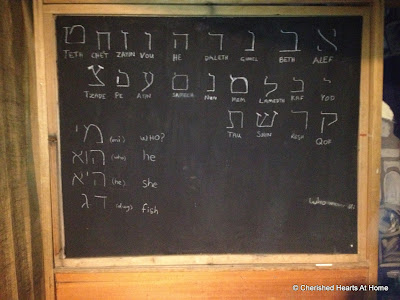 א ב ג ד ה ו ז ח ט
TETH CHET ZAYIN VOU HE DALETH GIMEL BETH ALEF
י כ ל מ נ ס ע פ צ
TZADE PE AYIN SAMEKH NUN MEM LAMEDTH KAF YOD
ק ר ש ת
TAU SHIN RESH QOF
מי (mi) WHO?
הוא (who) he
היא (he) she
דג (dag) fish
© Cherished Hearts At Home